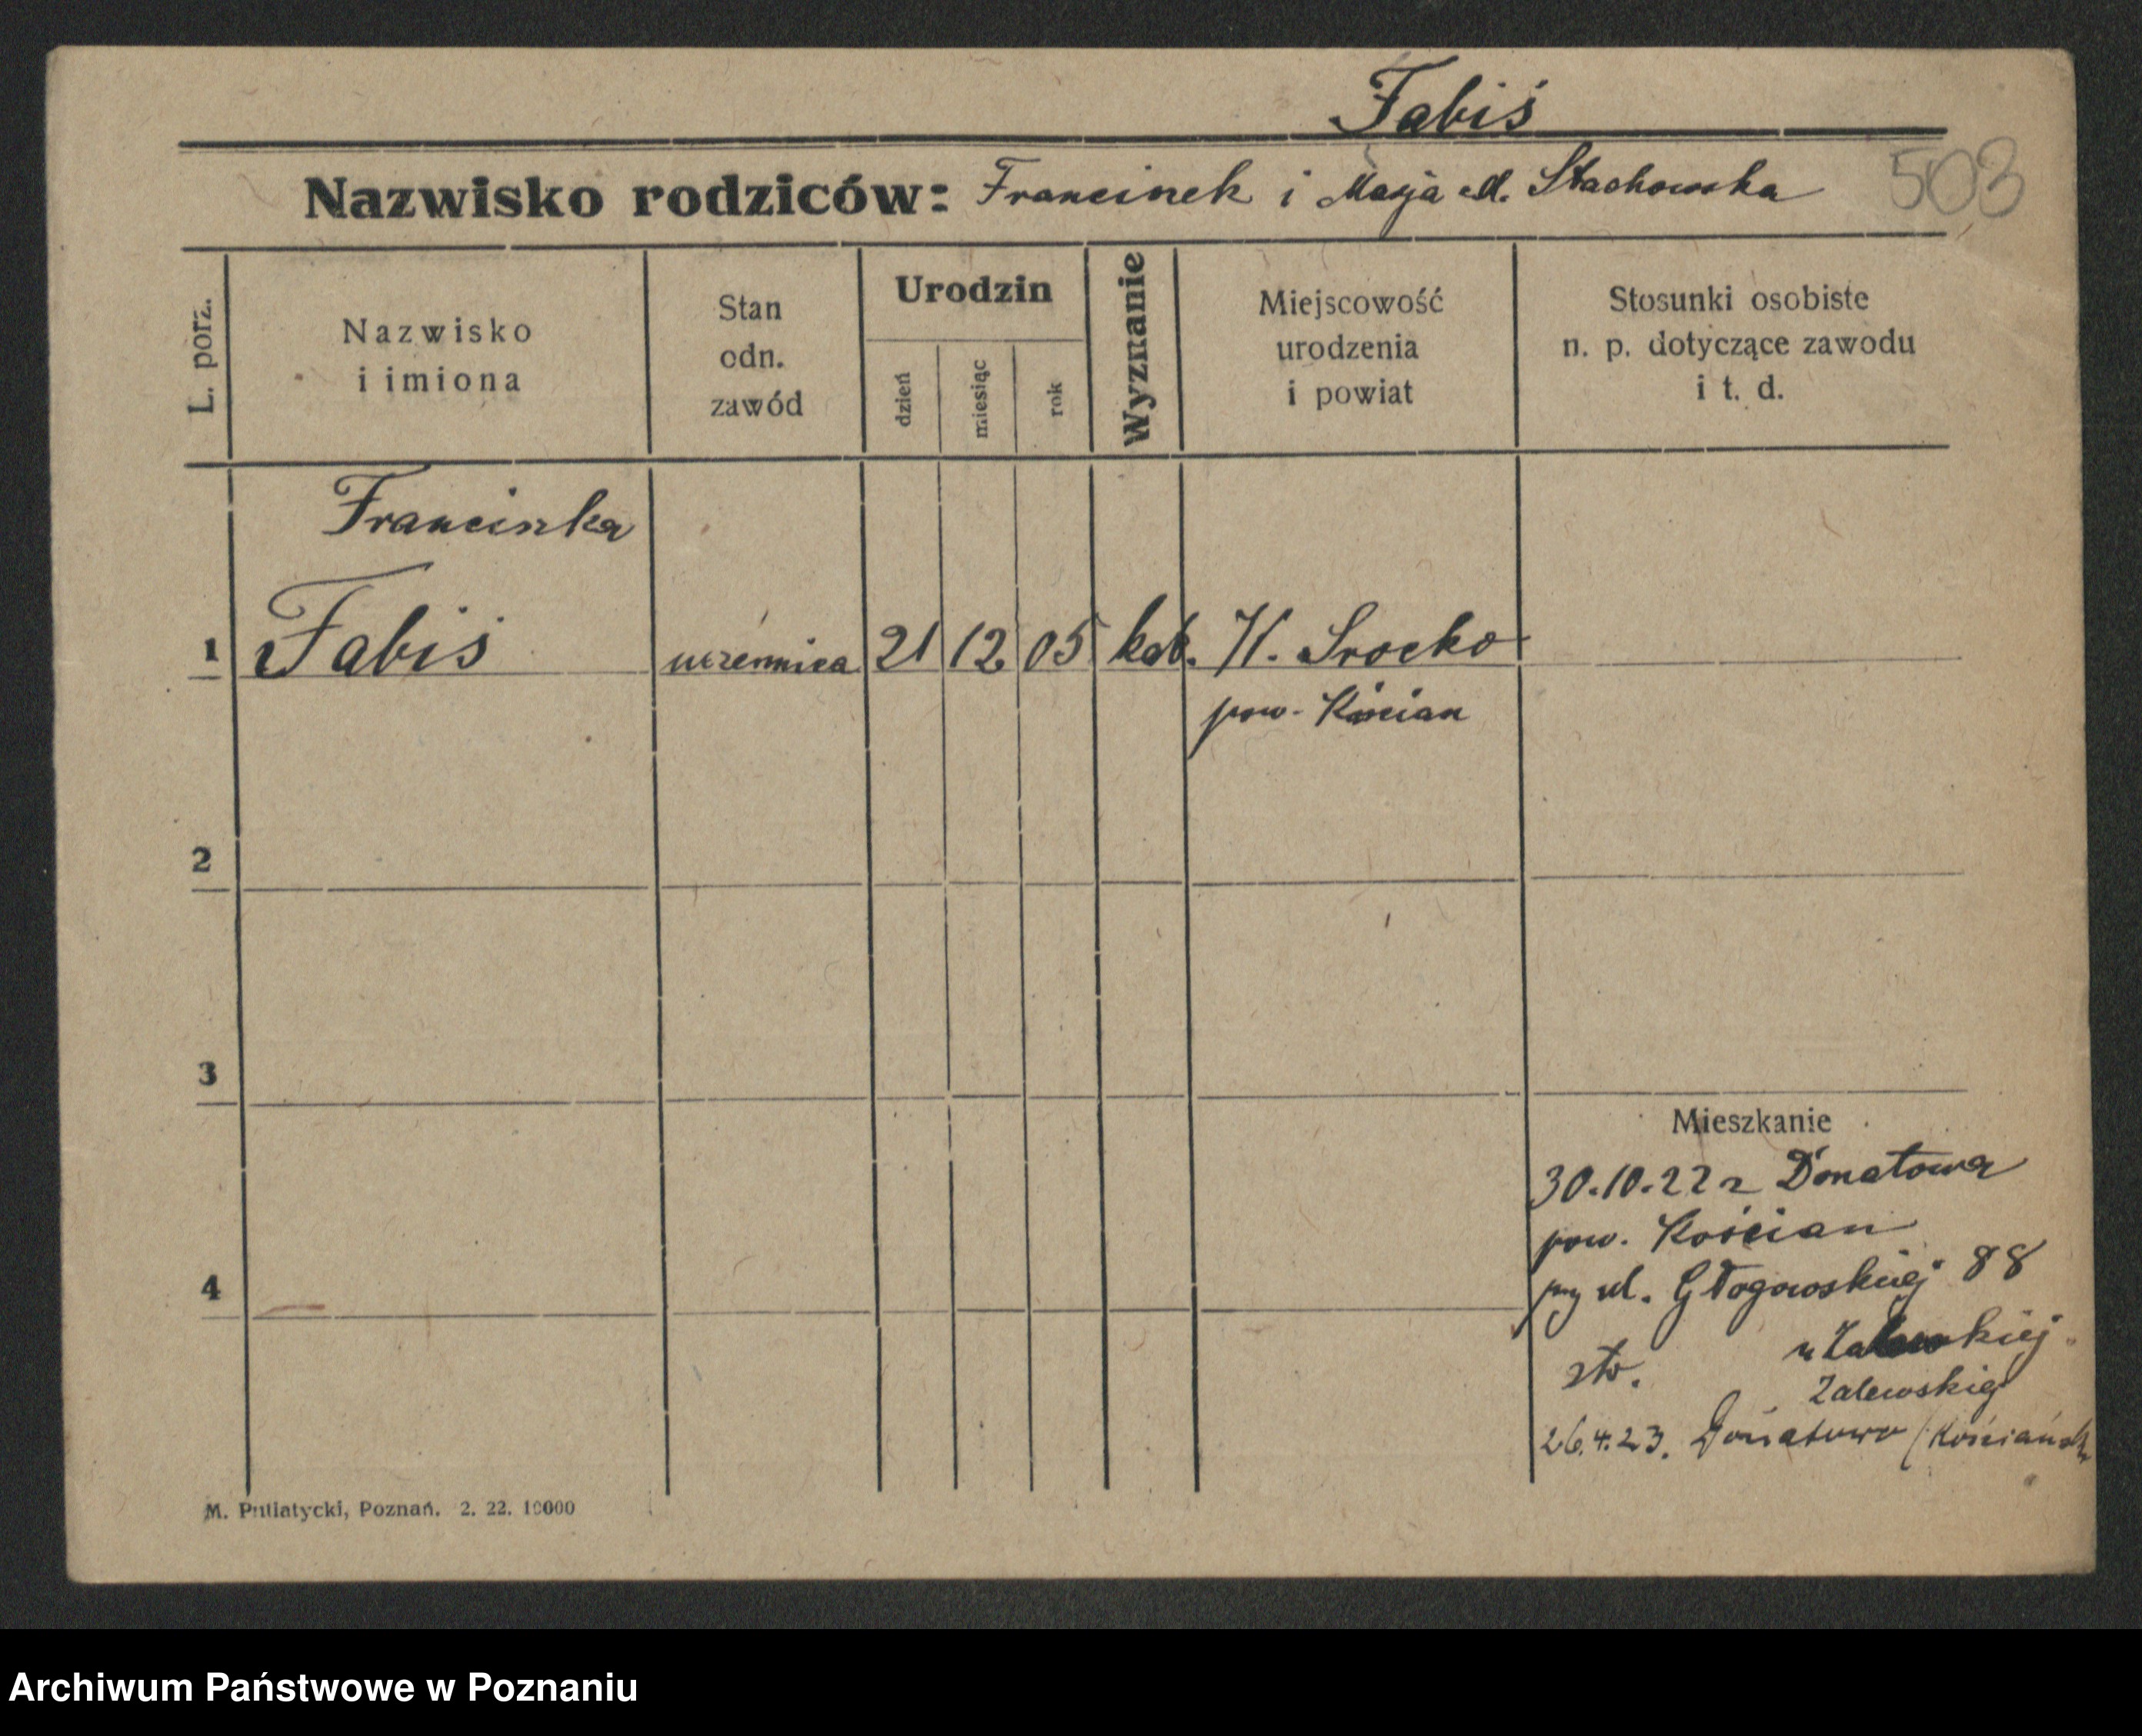 Fabiś
Nazwisko rodziców: Franciszek i Marja d. Stachowska
503
L. porz.
Nazwisko
i imiona
Stan
odn.
zawód
Urodzin
dzień
miesiąc
rok
Wyznanie
Miejscowość
urodzenia
i powiat
Stosunki osobiste
n. p. dotyczące zawodu
i t. d.
Franciszka
1 Fabiś uczennica 21 12 05 kat. W. Srocko
pow. Kościan
2
3
4
Mieszkanie
30.10.22 z Donatowa
pow. Kościan
przy ul. Głogowskiej 88
stw.
Zalewskiej
26.4.23. Donatowo / Kościańsk
M. Putiatycki, Poznań. 2. 22. 10000
Archiwum Państwowe w Poznaniu